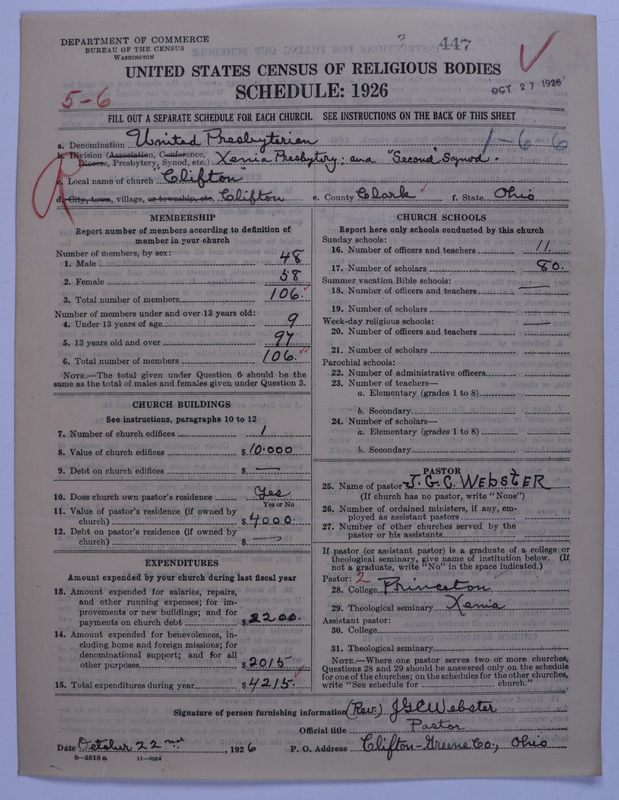 DEPARTMENT OF COMMERCE
BUREAU OF THE CENSUS
WASHINGTON
447
UNITED STATES CENSUS OF RELIGIOUS BODIES
SCHEDULE: 1926
OCT 27 1926
5-6
FILL OUT A SEPARATE SCHEDULE FOR EACH CHURCH. SEE INSTRUCTIONS ON THE BACK OF THIS SHEET
1-6-6
a. Denomination United Presbyterian
b. Division (Association, Conference, Diocese, Presbytery, Synod, etc.) Xenia Presbytery; and "Second" Synod.
c. Local name of church "Clifton"
d. City, town, village, or township, etc. Clifton e. County Clark f. State Ohio
MEMBERSHIP
Report number of members according to definition of
member in your church
Number of members, by sex:
1. Male 48
2. Female 58
3. Total number of members 106
Number of members under and over 13 years old:
4. Under 13 years of age 9
5. 13 years old and over 97
6. Total number of members 106
NOTE.—The total given under Question 6 should be the
same as the total of males and females given under Question 3.
CHURCH BUILDINGS
See instructions, paragraphs 10 to 12
7. Number of church edifices 1
8. Value of church edifices $10.000
9. Debt on church edifices $ —
10. Does church own pastor's residence Yes
Yes or No
11. Value of pastor's residence (if owned by
church) $4000.
12. Debt on pastor's residence (if owned by
church) $ —
EXPENDITURES
Amount expended by your church during last fiscal year
13. Amount expended for salaries, repairs,
and other running expenses; for im-
provements or new buildings; and for
payments on church debt $2200.
14. Amount expended for benevolences, in-
cluding home and foreign missions; for
denominational support; and for all
other purposes $2015
15. Total expenditures during year $4215.
CHURCH SCHOOLS
Report here only schools conducted by this church
Sunday schools:
16. Number of officers and teachers 11.
17. Number of scholars 80.
Summer vacation Bible schools:
18. Number of officers and teachers —
19. Number of scholars
Week-day religious schools:
20. Number of officers and teachers —
21. Number of scholars
Parochial schools:
22. Number of administrative officers
23. Number of teachers—
a. Elementary (grades 1 to 8)
b. Secondary
24. Number of scholars—
a. Elementary (grades 1 to 8)
b. Secondary
PASTOR
25. Name of pastor J. G. C. WEBSTER
(If church has no pastor, write "None")
26. Number of ordained ministers, if any, em-
ployed as assistant pastors
27. Number of other churches served by the
pastor or his assistants
If pastor (or assistant pastor) is a graduate of a college or
theological seminary, give name of institution below. (If
not a graduate, write "No" in the space indicated.)
Pastor: 2
28. College Princeton
29. Theological seminary Xenia
Assistant pastor:
30. College
31. Theological seminary
NOTE.—Where one pastor serves two or more churches,
Questions 28 and 29 should be answered only on the schedule
for one of the churches; on the schedules for the other churches,
write "See schedule for church."
Signature of person furnishing information (Rev.) JGCWebster
Official title Pastor
Date October 22nd, 1926 P. O. Address Clifton-Greene Co., Ohio
8-5518a 11-9064